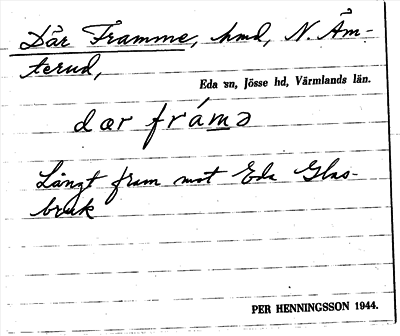 Där Framme, hmd, N. Åm-
terud,
Eda sn, Jösse hd, Värmlands län.
dær fráma
Långt fram mot Eda Glas-
bruk
PER HENNINGSSON 1944.